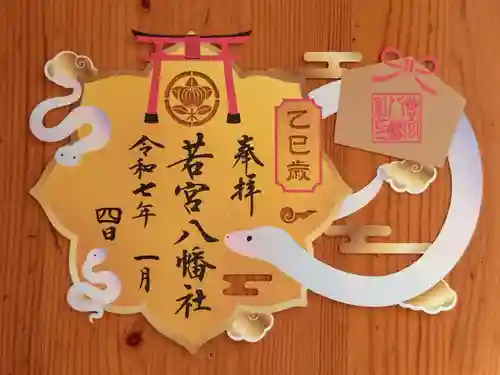 奉拝
乙巳歳
若宮八幡社
令和七年 一月
四日